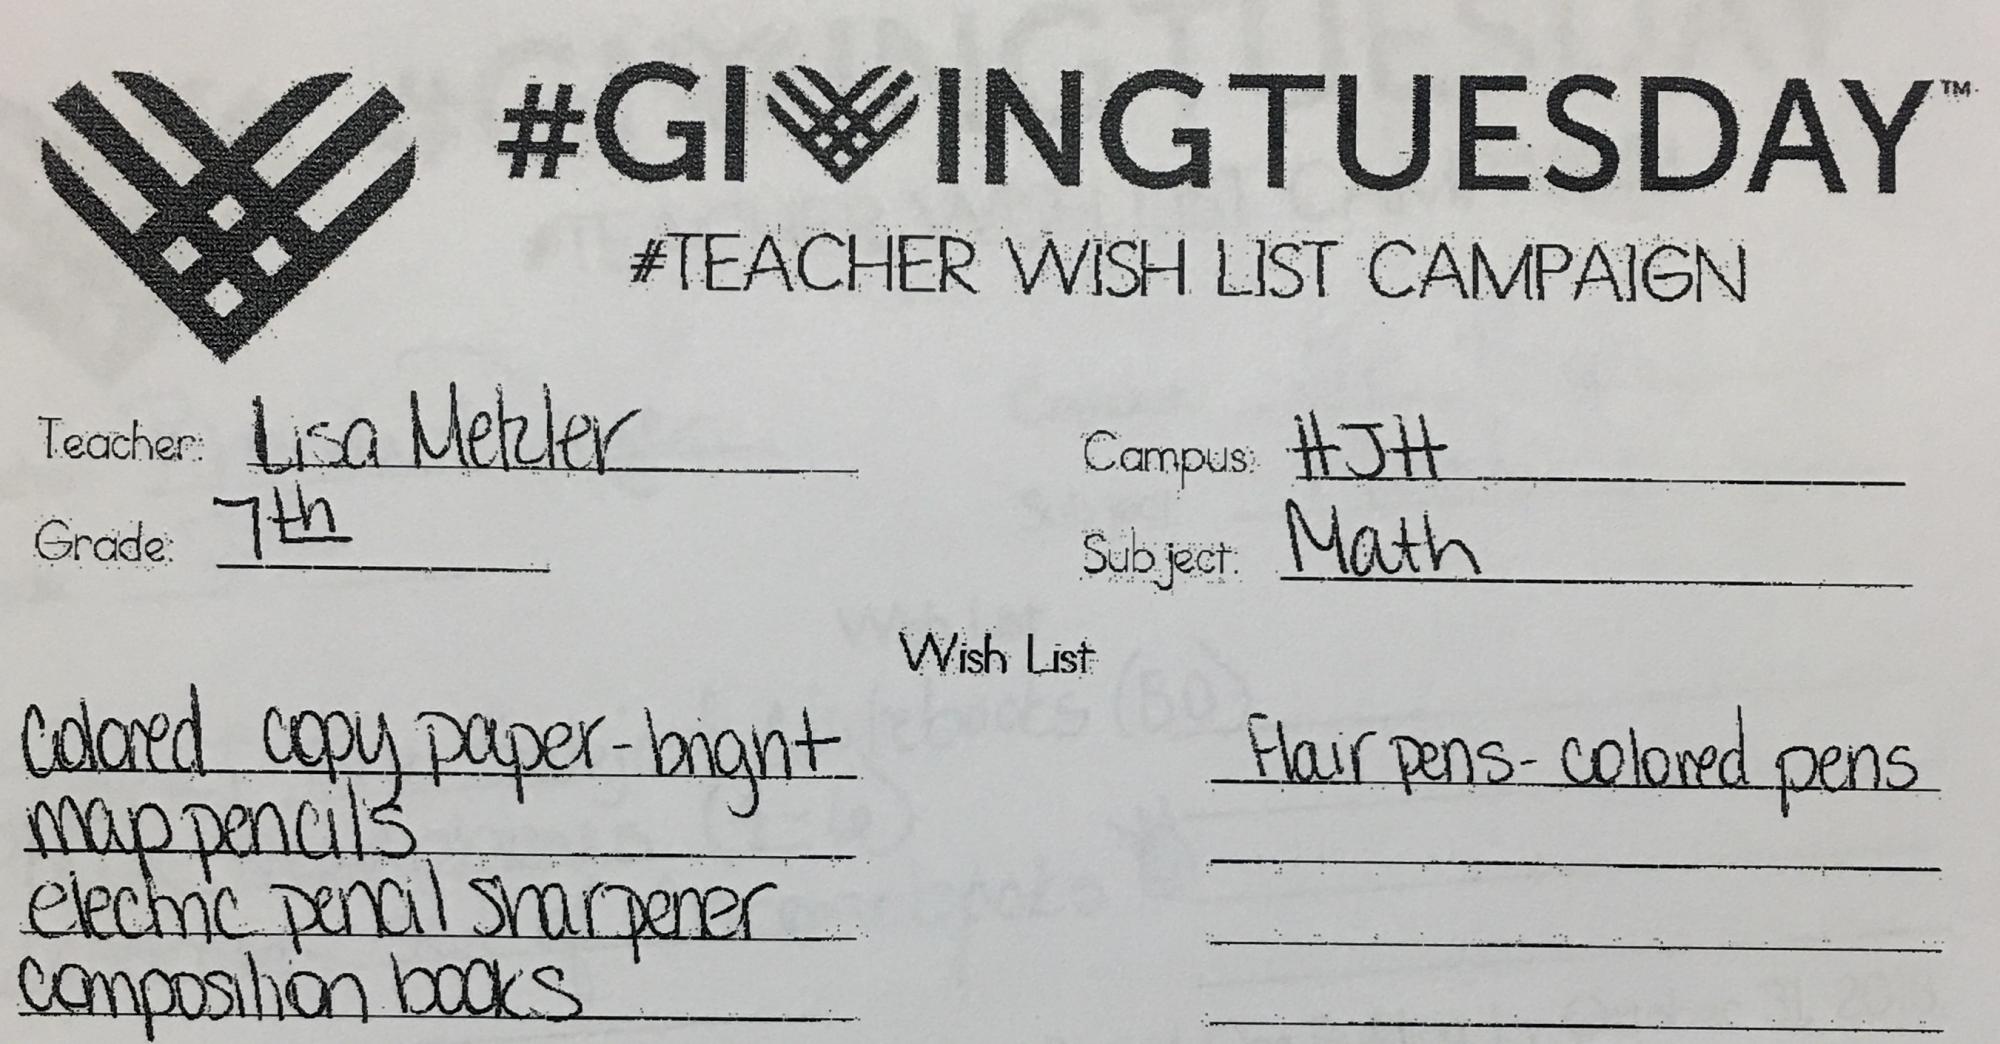 #GIVINGTUESDAY™
#TEACHER WISH LIST CAMPAIGN
Teacher: Lisa Metzler
Campus: HJH
Grade: 7th
Subject: Math
Wish List
Colored copy paper-bright
map pencils
electric pencil sharpener
composition books
Flair pens- colored pens